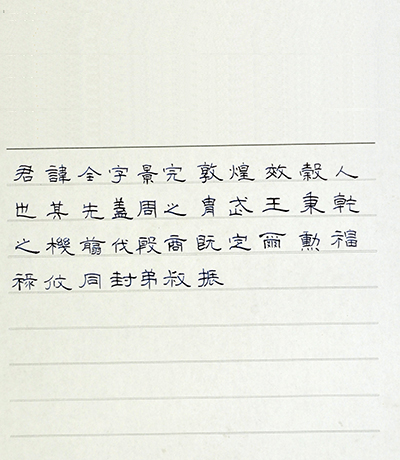 君諱全字景完敦煌效穀人
也其先蓋周之胄武王秉乾
之機翦伐殷商既定爾勲福
祿攸同封弟叔振